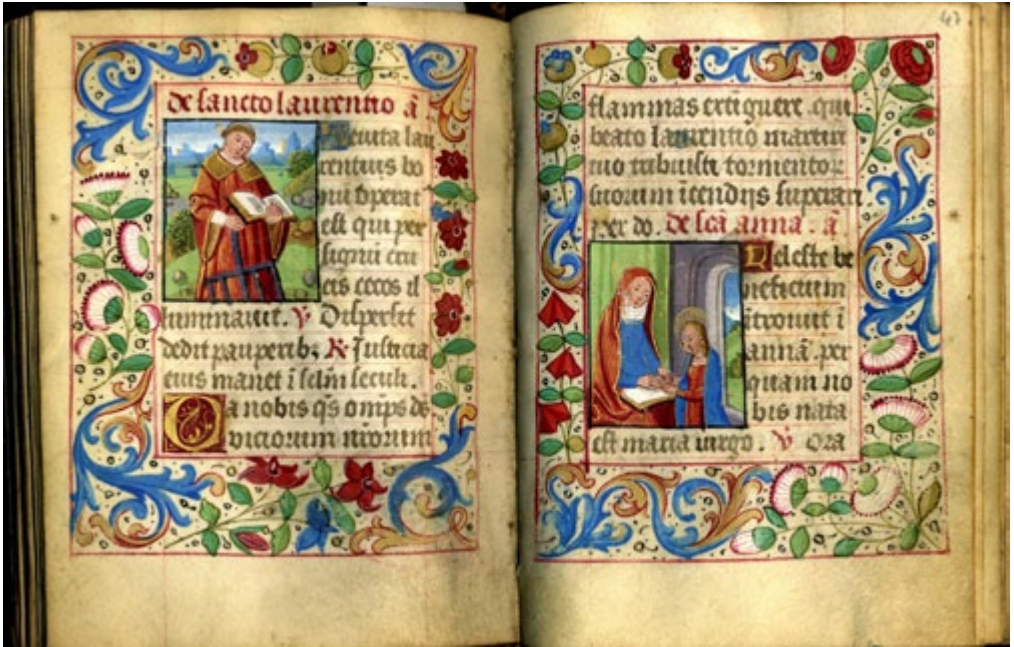 de sancto laurentio a̅
Leuita lau
rentius bo
nu̅ op̅erat
est qui per
signu̅ cru
cis cecos il
luminauit. v Dispersit
dedit pauperib. R̅ Justicia
eius manet i̅ sc̅lm seculi.
Da nobis qs̅ omp̅s ds̅
viciorum nr̅orum
47
flammas extiguere qui
beato laurentio martiri
tuo tribuisti tormentor
suorum i̅cendijs superari
per do. de sc̅a anna. a̅
Celeste be
neficium
i̅trouit i̅
anna̅. per
quam no
bis nata
est maria uirgo. v Ora